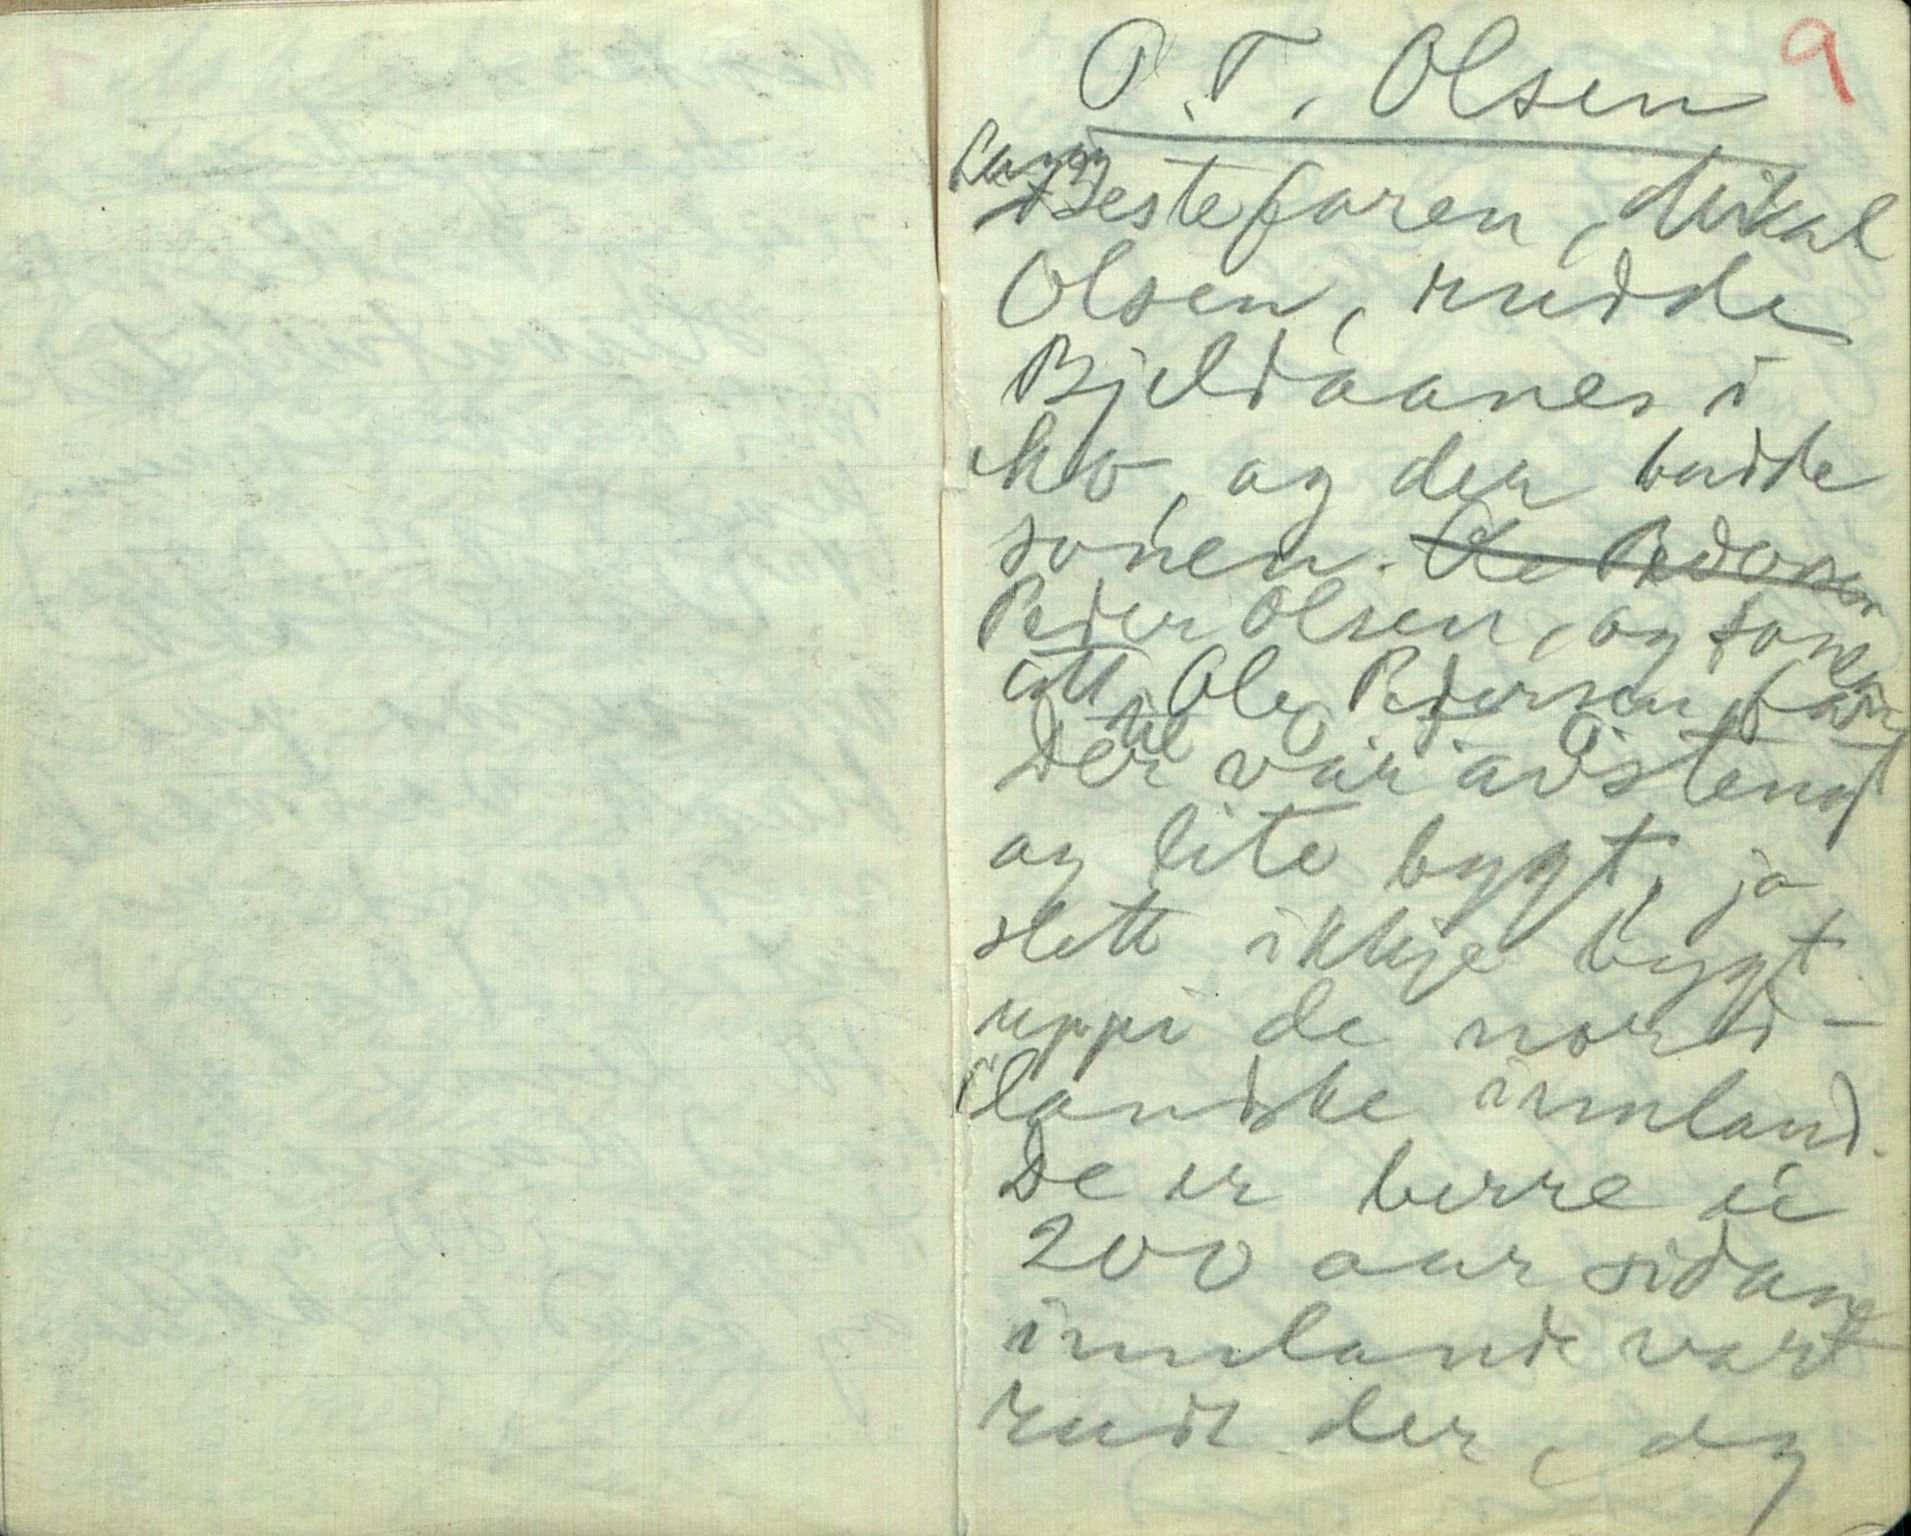 9
O. T. Olsen
Bestefaren, Mikal
Olsen, rudde
Bjeldaanes i
Mo, og der budde
sonen. Ole Pederson
Peder Olsen, og sonen
att, Ole Pedersen, far
til
Der var avstengt
og lite bygt, ja
slett ikkje bygt
uppi de nord-
landske innland.
De er berre ei
200 aar sidan
innlande vart
rudt der, og